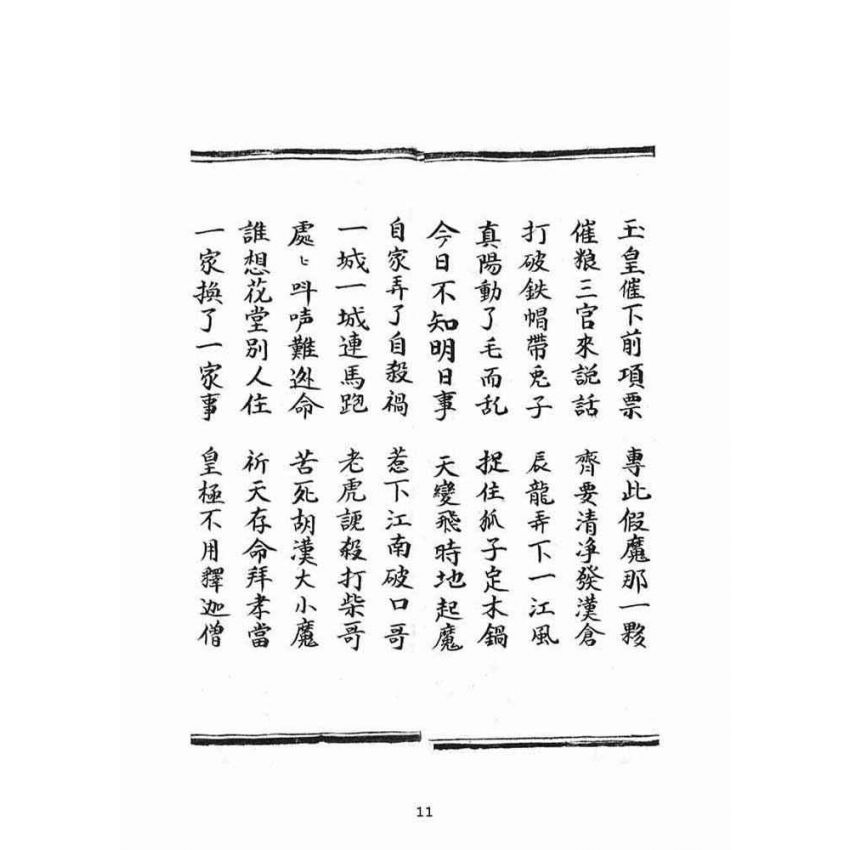 玉皇催下前項票　專此假魔那一夥
催粮三官來説話　齊要清净發漢倉
打破鉄帽帶兎子　辰龍弄下一江風
真陽動了毛而乱　捉住狐子定木鍋
今日不知明日事　天變飛時地起魔
自家弄了自殺禍　惹下江南破口哥
一城一城連馬跑　老虎諕殺打柴哥
處〻呌声難迯命　苦死胡漢大小魔
誰想花堂別人住　祈天存命拜孝當
一家換了一家事　皇極不用釋迦僧
11